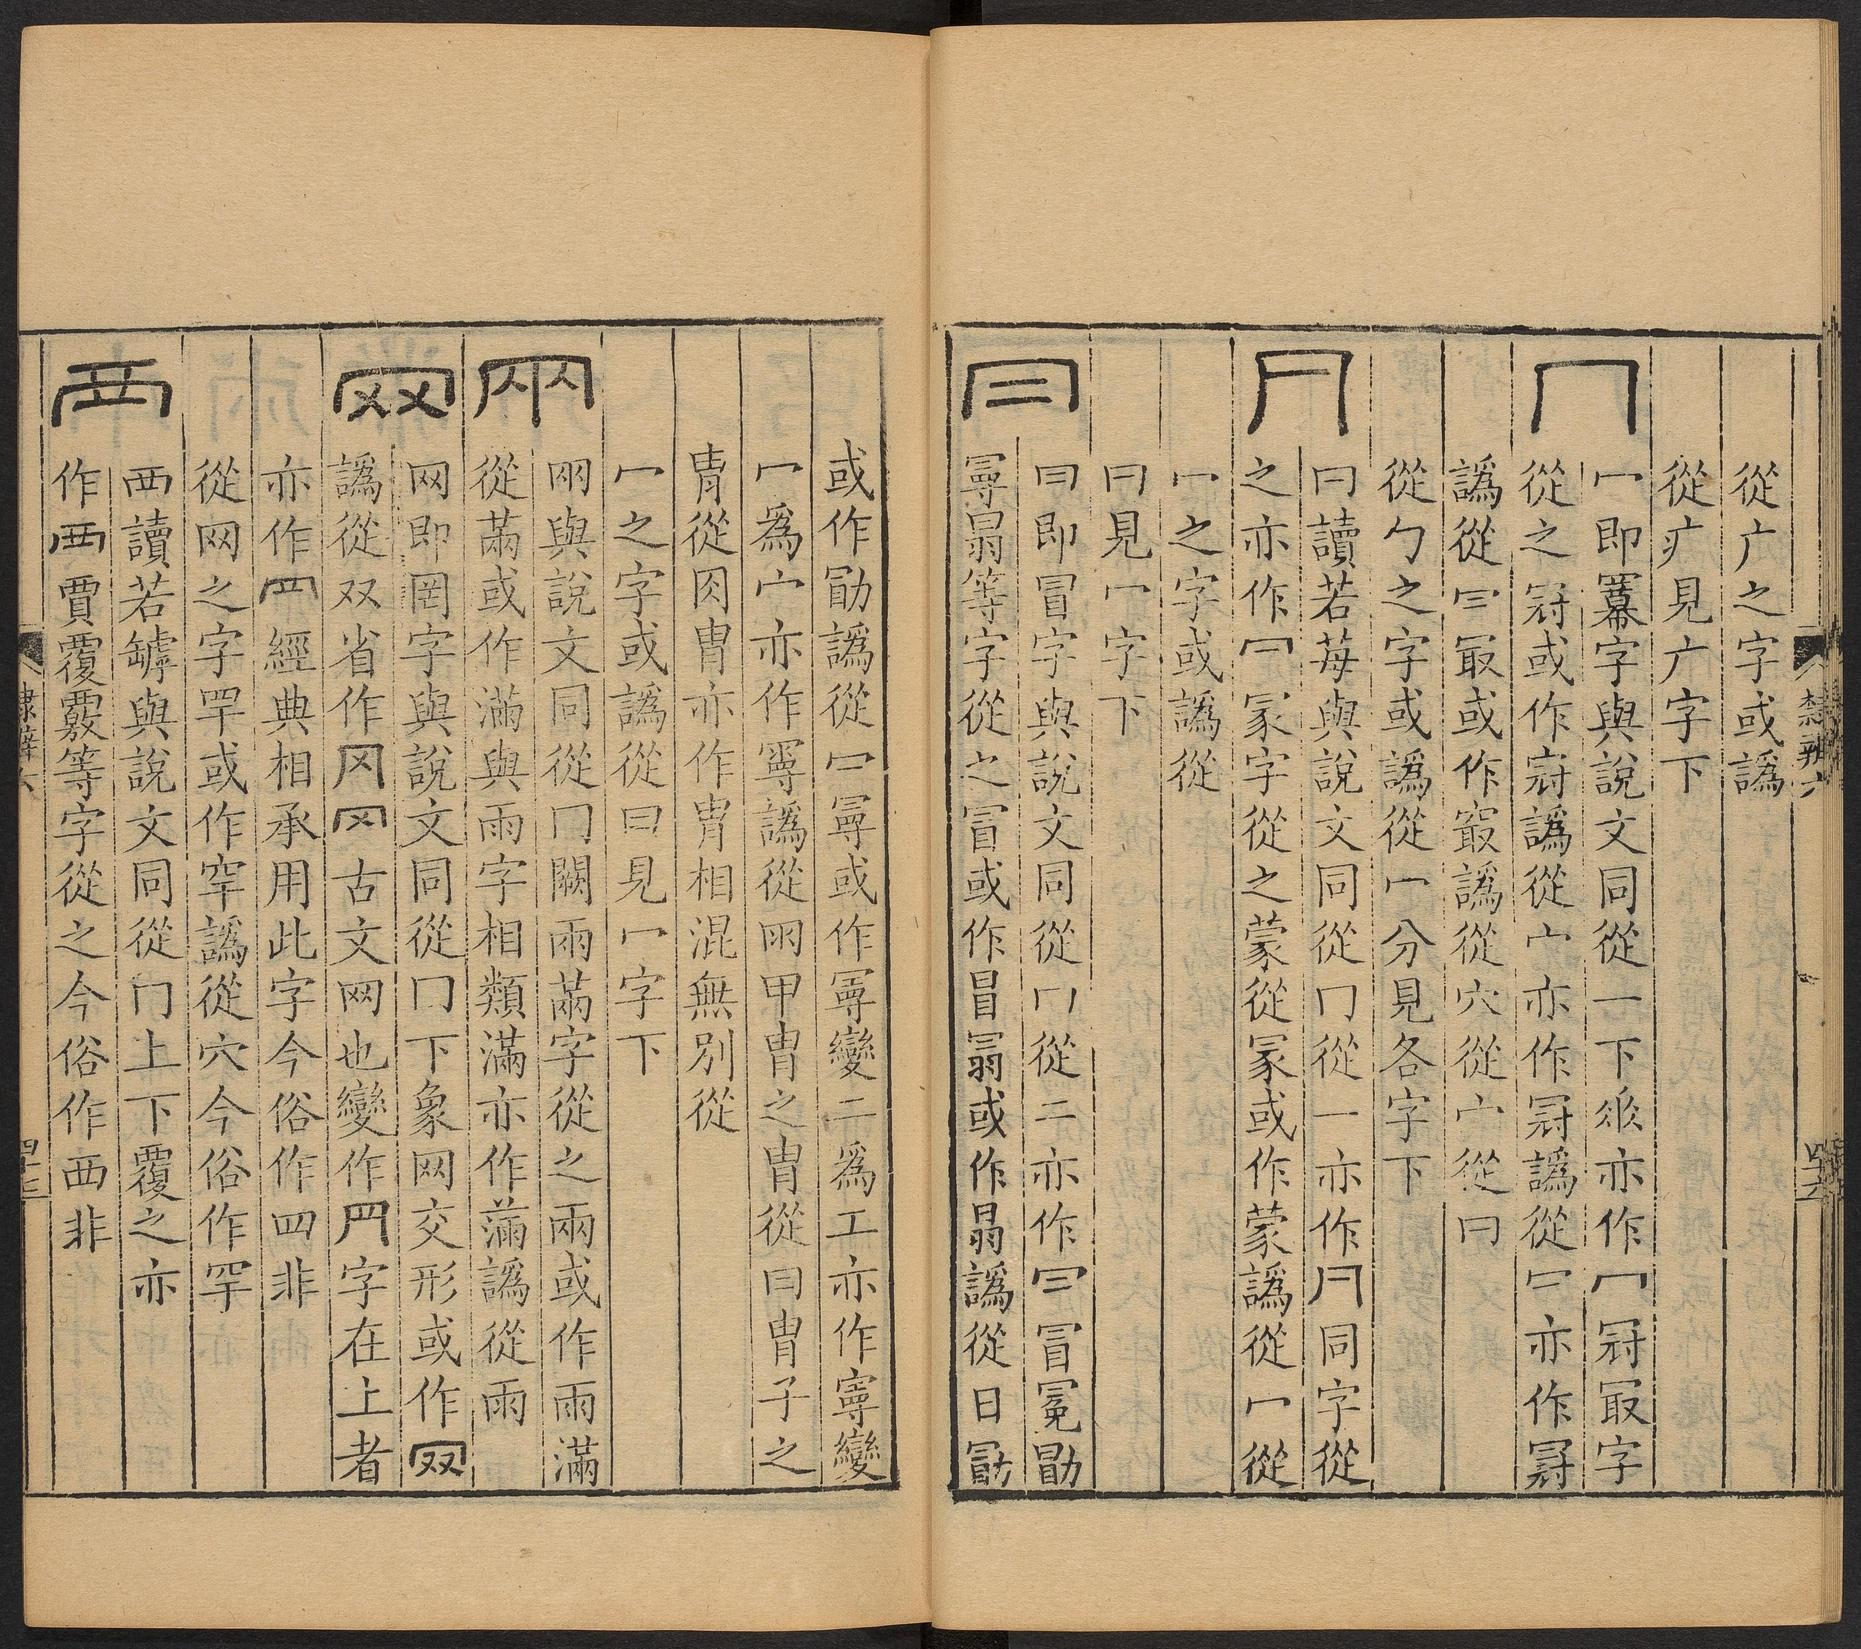 從广之字或譌
從疒見广字下
冖
冖即冪字與說文同從一下𠂢亦作冖冠冣字
從之冠或作𡨥譌從宀亦作冠譌從冃亦作冠
譌從冃冣或作㝡譌從穴從宀從曰
從勹之字或譌從冖分見各字下
冃
冃讀若苺與說文同從冂從一亦作冃同字從
之亦作冃冡字從之蒙從冡或作蒙譌從冖從
冖之字或譌從
冃見冖字下
冃
冃即冒字與說文同從冂從二亦作冃冒冕勖
冔㒻等字從之冒或作冒㒻或作㒻譌從日勖
隸辨六
四十六
或作勖譌從冃冔或作冔變二為工亦作寧變
冖為宀亦作寧譌從网甲冑之冑從冃冑子之
冑從肉冑亦作冑相混無別從
冖之字或譌從曰見冖字下
㒳
㒳與說文同從冂闕㒳㒼字從之兩或作兩滿
從㒼或作滿與雨字相類滿亦作滿譌從雨
网
网即罔字與說文同從冂下象网交形或作网
譌從双省作冈𦉰古文网也變作罓字在上者
亦作罒經典相承用此字今俗作四非
從网之字罕或作䍐譌從穴今俗作罕
襾
襾讀若罅與說文同從冂上下覆之亦
作襾賈覆覈等字從之今俗作西非
隸辨六
四十三